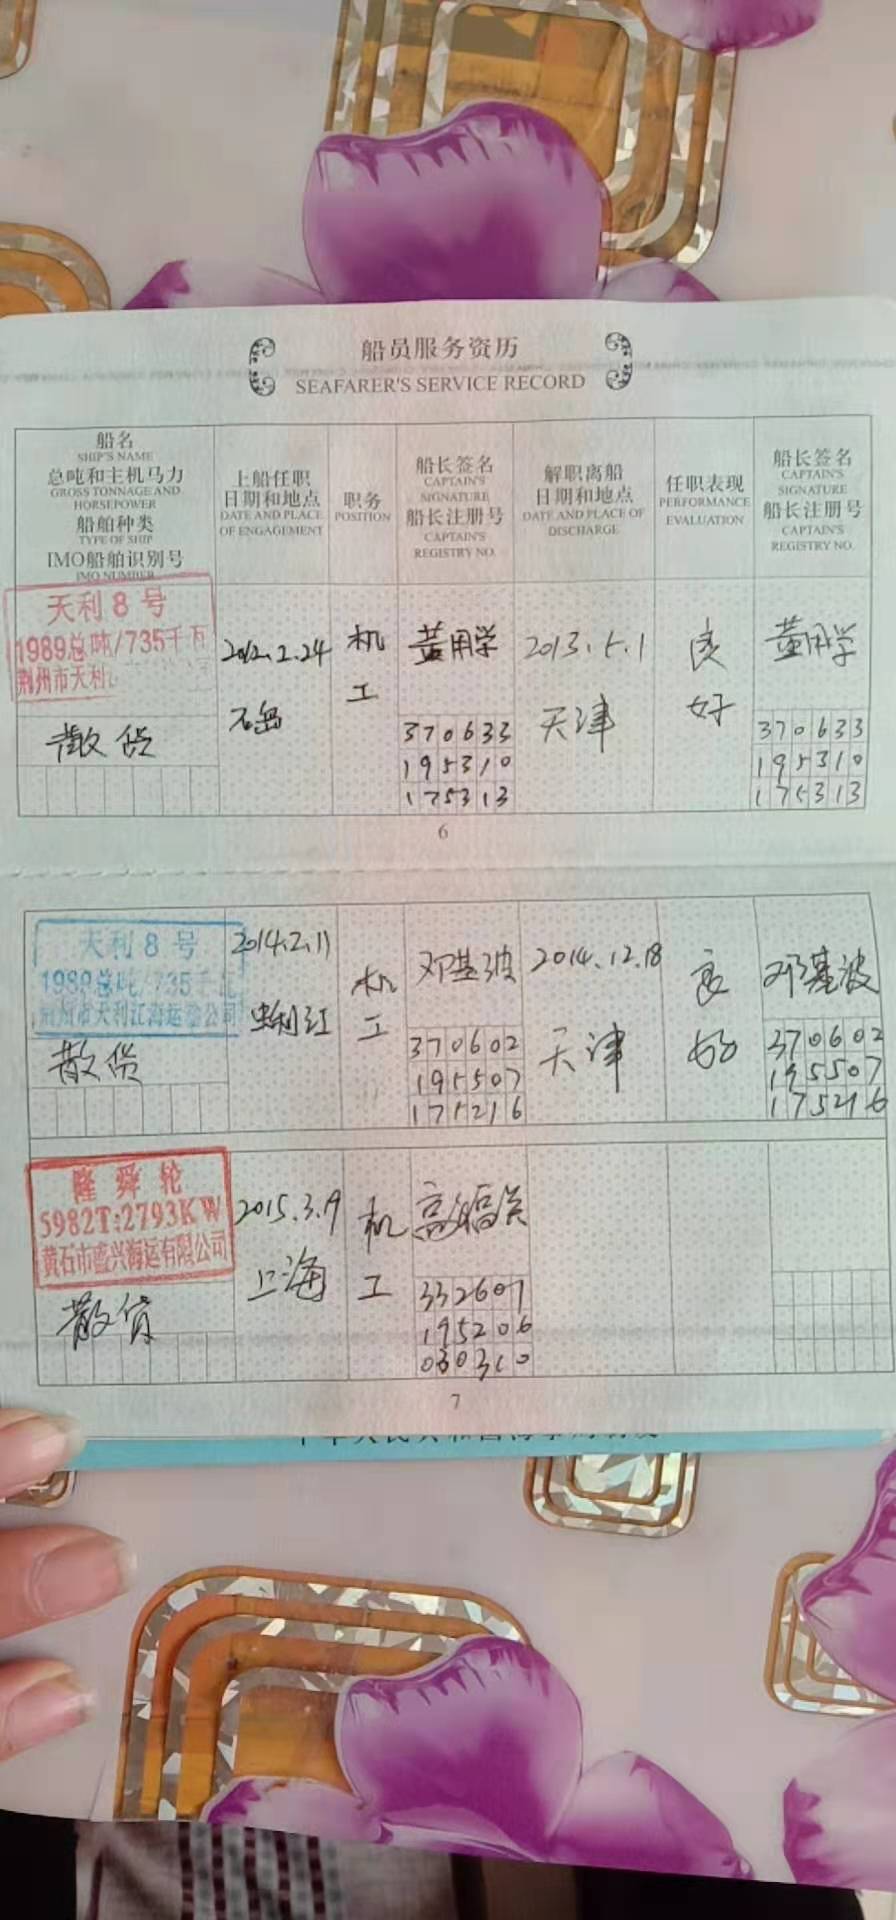 船员服务资历
SEAFARER'S SERVICE RECORD
船名
SHIP'S NAME
总吨和主机马力
GROSS TONNAGE AND
HORSEPOWER
船舶种类
TYPE OF SHIP
IMO船舶识别号
IMO NUMBER
上船任职
日期和地点
DATE AND PLACE
OF ENGAGEMENT
职务
POSITION
船长签名
CAPTAIN'S
SIGNATURE
船长注册号
CAPTAIN'S
REGISTRY NO.
解职离船
日期和地点
DATE AND PLACE OF
DISCHARGE
任职表现
PERFORMANCE
EVALUATION
船长签名
CAPTAIN'S
SIGNATURE
船长注册号
CAPTAIN'S
REGISTRY NO.
天利8号
1989总吨/735千瓦
荆州市天利
散货
2012.2.24
石岛
机
工
370633
195310
175313
2013.5.1
天津
良
好
370633
195310
175313
6
天利8号
1989总吨/735千瓦
荆州市天利江海运
公司
散货
2014.2.11
机
工
邓基波
370602
195507
175216
2014.12.18
天津
良
好
邓基波
370602
195507
175216
隆舜轮
5982T:2793KW
黄石市盛兴海运有限公司
散货
2015.3.19
上海
机
工
332607
195206
030310
7